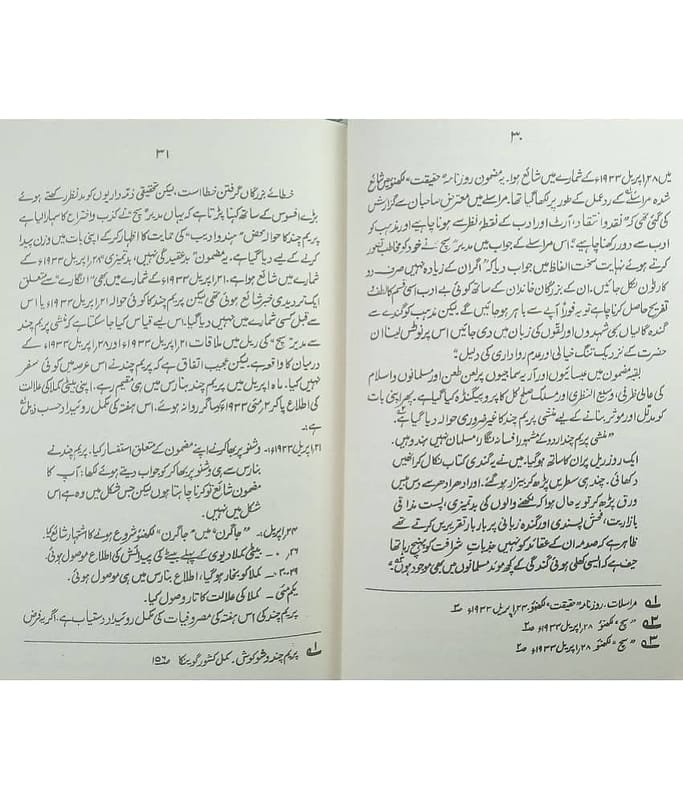 ۳۰
میں ۲۸؍اپریل ۱۹۳۳ء کے شمارے میں شائع ہوا۔ یہ مضمون روزنامہ "حقیقت" لکھنؤ میں شائع
شدہ مراسلے کے ردعمل کے طور پر لکھا گیا تھا۔ مراسلے میں معترض صاحبان سے گزارش
کی گئی تھی کہ "نقد و انتقاد، آرٹ اور ادب کے نقطۂ نظر سے ہونا چاہیے اور مذہب کو
ادب سے دور رکھنا چاہیے" اس مراسلے کے جواب میں مدیر "سچ" نے خود کو مخاطب تصور
کرتے ہوئے نہایت سخت الفاظ میں جواب دیا کہ "اگر ان کے زیادہ نہیں صرف دو
کارٹون نکل جائیں۔ ان کے بزرگان خاندان کے ساتھ کوئی بے ادب اسی قسم کا لطف
تفریح حاصل کرنا چاہے تو یہ فوراً آپے سے باہر ہو جائیں گے۔ لیکن مذہب کو گندے سے
گندہ گالیاں بھی شہدوں اور لقوں کی زبان میں دی جائیں اس پر نوٹس لینا ان
حضرت کے نزدیک تنگ خیالی اور عدم رواداری کی دلیل۔"
بقیہ مضمون میں عیسائیوں اور آریہ سماجیوں پر لعن طعن اور مسلمانوں و اسلام
کی عالی ظرفی، وسیع النظری اور مسلک صلح کل کا پروپیگنڈہ کیا گیا ہے۔ پھر اپنی بات
کو مدلل اور موثر بنانے کے لیے منشی پریم چند کا غیر ضروری حوالہ دیا گیا ہے۔
"منشی پریم چند اردو کے مشہور افسانہ نگار، مسلمان نہیں ہندو ہیں۔
ایک روز ریل پر ان کا ساتھ ہو گیا۔ میں نے یہ گندی کتاب نکال کر انھیں
دکھائی۔ چند ہی سطریں پڑھ کر بیزار ہو گئے۔ اور ادھر ادھر سے دس بیس
ورق پڑھ کر تو یہ حال ہوا کہ لکھنے والوں کی بدتمیزی، پست مذاقی
بازاریت، فحش پسندی اور گندہ زبانی پر بار بار تقریریں کرتے تھے
ظاہر ہے کہ صدمہ ان کے عقائد کو نہیں جذبات شرافت کو پہنچ رہا تھا
حیف ہے کہ ایسی کھلی ہوئی گندگی کے کچھ موید مسلمانوں میں بھی موجود ہوں۔"
۱ مراسلات۔ روزنامہ "حقیقت" لکھنؤ۔ ۲۳؍اپریل ۱۹۳۳ء
۲ "سچ" لکھنؤ ۲۸؍اپریل ۱۹۳۳ء
۳ "سچ" لکھنؤ ۲۸؍اپریل ۱۹۳۳ء
۳۱
خطائے بزرگاں گرفتن خطا است، لیکن تحقیقی ذمہ داریوں کو مدنظر رکھتے ہوئے
بڑے افسوس کے ساتھ کہنا پڑتا ہے کہ یہاں مدیر "سچ" نے کذب و اختراع کا سہارا لیا ہے
پریم چند کا حوالہ محض "ہندو ادیب" کی حمایت کا اظہار کر کے اپنی بات میں وزن پیدا
کرنے کے لیے دیا گیا ہے۔ یہ مضمون "بدعقیدگی نہیں، بدتمیزی" ۲۸؍اپریل ۱۹۳۳ء کے
شمارے میں شائع ہوا ہے۔ ۲۱؍اپریل ۱۹۳۳ء کے شمارے میں بھی "انگارے" سے متعلق
ایک تردیدی خبر شائع ہوئی تھی لیکن پریم چند کا کوئی حوالہ ۲۱؍اپریل یا اس
سے قبل کسی شمارے میں نہیں دیا گیا۔ اس لیے قیاس کیا جا سکتا ہے کہ منشی پریم چند
سے مدیر "سچ" کی ریل میں ملاقات ۲۱؍اپریل ۱۹۳۳ء اور ۲۸؍اپریل ۱۹۳۳ء کے
درمیان کا واقعہ ہے لیکن عجیب اتفاق ہے کہ پریم چند نے اس عرصہ میں کوئی سفر
نہیں کیا۔ ماہ اپریل میں پریم چند بنارس میں ہی مقیم رہے۔ اپنی بیٹی کملا کی علالت
کی اطلاع پا کر ۲؍مئی ۱۹۳۳ء کو ساگر روانہ ہوئے۔ اس ہفتہ کی مکمل روئیداد حسب ذیل
ہے۔
۲۱؍اپریل ۱۹۳۳ء۔ وشنو پربھاکر نے اپنے مضمون کے متعلق استفسار کیا۔ پریم چند نے
بنارس سے ہی وشنو پربھاکر کو جواب دیتے ہوئے لکھا: آپ کا
مضمون شائع تو کرنا چاہتا ہوں لیکن جس شکل میں وہ ہے اس
شکل میں نہیں۔
۲۴؍اپریل۔ "جاگرن" میں "جاگرن" لکھنؤ شروع ہونے کا اشتہار شائع کیا۔
۲۹؍ ۰۔ بیٹی کملا دیوی کے پہلے بیٹے کی پیدائش کی اطلاع موصول ہوئی۔
۲۹-۳۰۔ کملا کو بخار ہو گیا، اطلاع بنارس میں ہی موصول ہوئی۔
یکم مئی۔ کملا کی علالت کا تار وصول کیا۔
پریم چند کی اس ہفتہ کی مصروفیات کی مکمل روئیداد دستیاب ہے۔ اگر بہ فرض
۱ پریم چند وشوکوش۔ کمل کشور گوینکا ص ۱۵۶